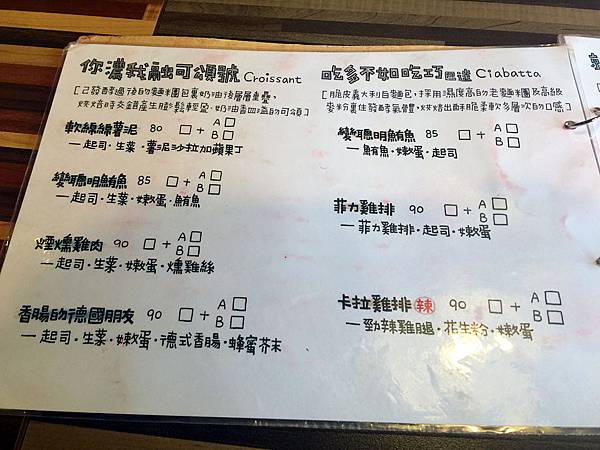 你濃我融可頌號 Croissant
[已發酵過後的麵糰包裹奶油後層層重疊,
烘焙時交錯產生膨鬆輕盈、奶油香四溢的可頌]
軟綿綿薯泥 80 □+ A□ B□
一起司·生菜·薯泥沙拉加蘋果丁
變聰明鮪魚 85 □+ A□ B□
一起司·生菜·嫩蛋·鮪魚
煙燻雞肉 90 □+ A□ B□
一起司·生菜·嫩蛋·燻雞絲
香腸的德國朋友 90 □+ A□ B□
一起司·生菜·嫩蛋·德式香腸·蜂蜜芥末
吃多不如吃巧巴達 Ciabatta
[脆皮義大利白麵包,採用濕度高的老麵糰及高級
麥粉裹住發酵氣體,烘焙出酥脆柔軟多層次的口感]
變聰明鮪魚 85 □+ A□ B□
一鮪魚·嫩蛋·起司
菲力雞排 90 □+ A□ B□
一菲力雞排·起司·嫩蛋
卡拉雞排 辣 90 □+ A□ B□
一勁辣雞腿·花生粉·嫩蛋